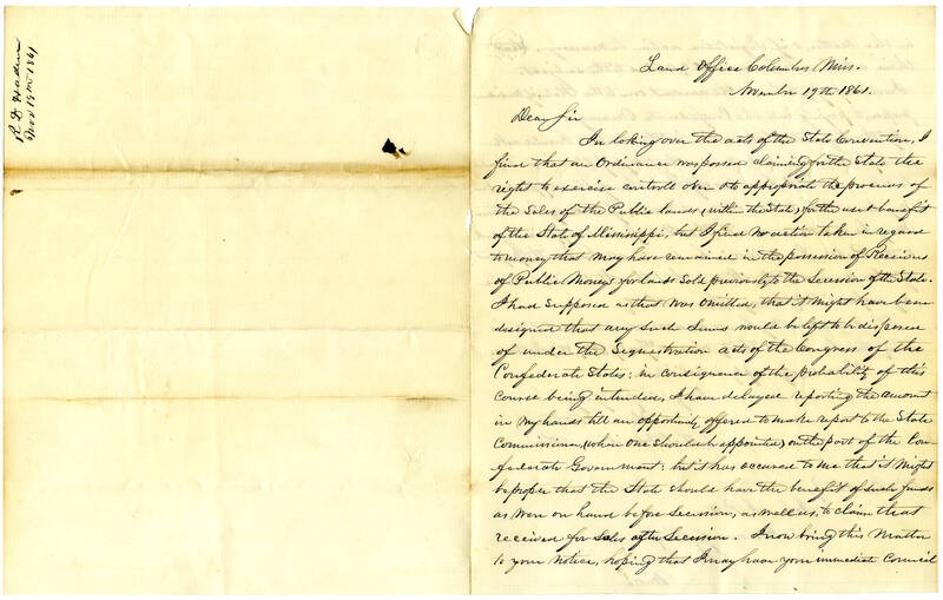 R D Haden
Nov 19th 1861
Land Office Columbus Miss.
November 19th 1861.
Dear Sir
In looking over the acts of the State Convention, I
find that an Ordinance was passed claiming for the State the
right to exercise controll over & to appropriate the proceeds of
the Sales of the Public lands (within the State) for the use & benefit
of the State of Mississippi, but I find no action taken in regard
to money that may have remained in the possession of Receivers
of Public Moneys for lands Sold previously to the Secession of the State.
I had Supposed as that was omitted, that it might have been
designed that any such Sums would be left to be disposed
of under the Sequestration acts of the Congress of the
Confederate States; in consequence of the probability of this
course being intended, I have delayed reporting the amount
in my hands till an opportunity offered to make report to the State
Commissioner, (when one should be appointed) on the part of the Con-
federate Government: but it has occured to me that it might
be proper that the State should have the benefit of such funds
as were on hand before Secession, as well as, to claim that
received for Sales after Secession. I now bring this Matter
to your Notice, hoping that I may have your immediate Council